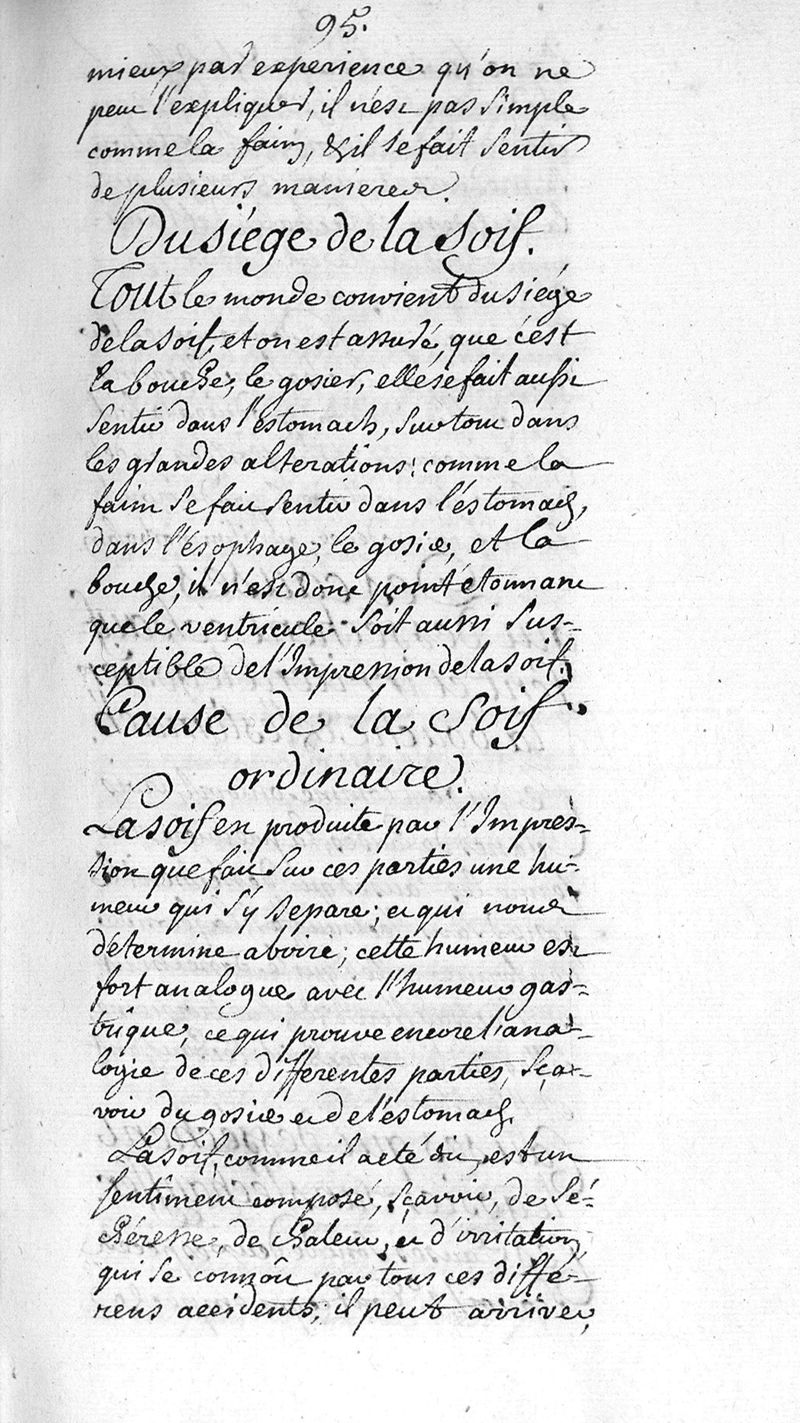 95.
mieux par experience qu'on ne
peut l'expliquer, il n'est pas simple
comme la faim, & il se fait sentir
de plusieurs manieres.
Du siége de la soif.
Tout le monde convient du siége
de la soif, et on est assuré, que c'est
la bouche, le gosier, elle se fait aussi
sentir dans l'estomach, surtout dans
les grandes alterations: comme la
faim se fait sentir dans l'éstomach,
dans l'ésophage, le gosier, et la
bouche, il n'est donc point étonnant
que le ventricule soit aussi sus=
ceptible de l'Impression de la soif.
Cause de la Soif
ordinaire.
La soif est produite par l'Impres=
sion que fait sur ces parties une hu=
meur qui s'y separe; et qui nous
détermine a boire; cette humeur est
fort analogue avec l'humeur gas=
trique, ce qui prouve encore l'ana=
logie de ces differentes parties, sça=
voir du gosier et de l'éstomach.
La soif, comme il a eté dit, est un
sentiment composé, sçavoir, de sé=
cheresse, de chaleur, et d'irritation,
qui se connoit par tous ces diffé=
rens accidents; il peut arriver,